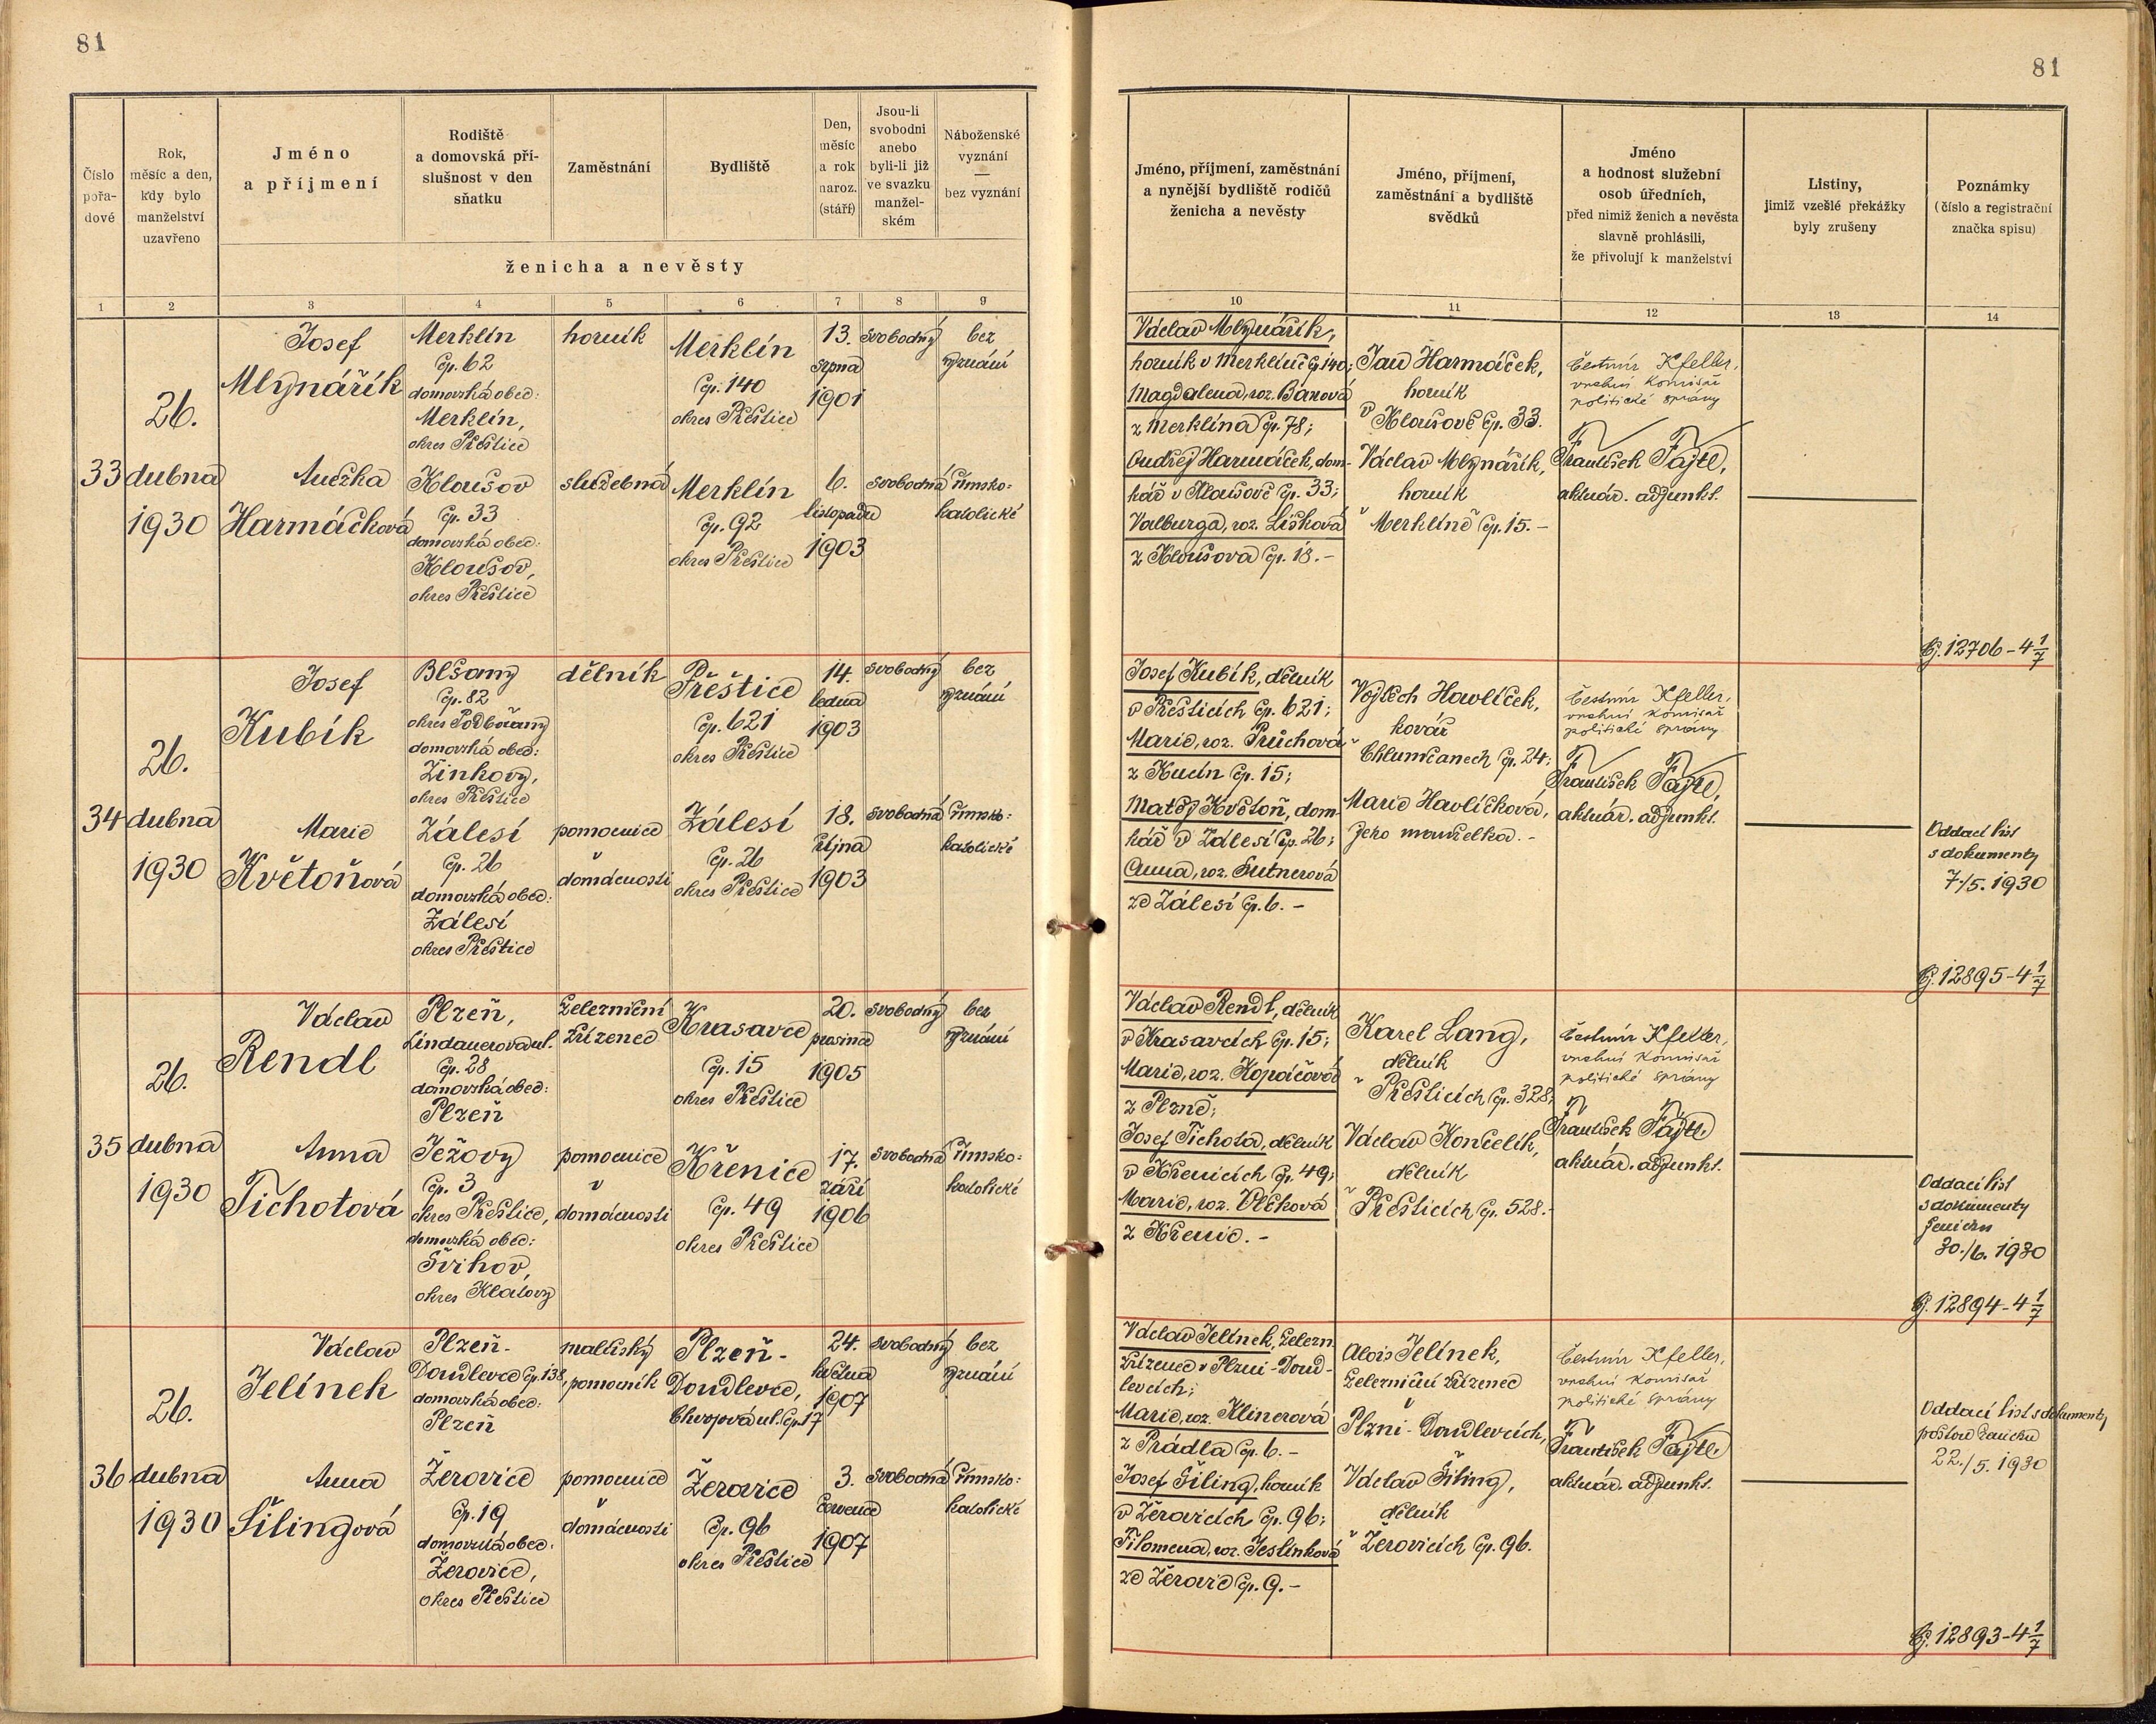 81
Číslo
pořa-
dové
Rok,
měsíc a den,
kdy bylo
manželství
uzavřeno
Jméno
a příjmení
Rodiště
a domovská pří-
slušnost v den
sňatku
Zaměstnání
Bydliště
Den,
měsíc
a rok
naroz.
(stáří)
Jsou-li
svobodni
anebo
byli-li již
ve svazku
manžel-
ském
Náboženské
vyznání
—
bez vyznání
ženicha a nevěsty
1 2 3 4 5 6 7 8 9
33
26.
dubna
1930
Josef
Mlynářík
Merklín
čp. 62
domovská obec:
Merklín,
okres Přeštice
horník
Merklín
čp. 140
okres Přeštice
13.
srpna
1901
svobodný
bez
vyznání
Anežka
Harmáčková
Kloušov
čp. 33
domovská obec:
Kloušov,
okres Přeštice
služebná
Merklín
čp. 92
okres Přeštice
6.
listopadu
1903
svobodná
římsko-
katolické
34
26.
dubna
1930
Josef
Kubík
Blšany
čp. 82
okres Podbořany
domovská obec:
Žinkovy,
okres Přeštice
dělník
Přeštice
čp. 621
okres Přeštice
14.
ledna
1903
svobodný
bez
vyznání
Marie
Květoňová
Zálesí
čp. 26
domovská obec:
Zálesí
okres Přeštice
pomocnice
v
domácnosti
Zálesí
čp. 26
okres Přeštice
18.
října
1903
svobodná
římsko-
katolické
35
26.
dubna
1930
Václav
Rendl
Plzeň,
Lindauerova ul.
čp. 28
domovská obec:
Plzeň
železniční
zřízenec
Krasavce
čp. 15
okres Přeštice
20.
prosince
1905
svobodný
bez
vyznání
Anna
Tichotová
Ježovy
čp. 3
okres Přeštice,
domovská obec:
Švihov,
okres Klatovy
pomocnice
v
domácnosti
Křenice
čp. 49
okres Přeštice
17.
září
1906
svobodná
římsko-
katolické
36
26.
dubna
1930
Václav
Jelínek
Plzeň-
Doudlevce čp. 138,
domovská obec:
Plzeň
malířský
pomocník
Plzeň-
Doudlevce,
Chvojová ul. čp. 17
24.
května
1907
svobodný
bez
vyznání
Anna
Šilingová
Žerovice
čp. 19
domovská obec:
Žerovice,
okres Přeštice
pomocnice
v
domácnosti
Žerovice
čp. 96
okres Přeštice
3.
července
1907
svobodná
římsko-
katolické
81
Jméno, příjmení, zaměstnání
a nynější bydliště rodičů
ženicha a nevěsty
Jméno, příjmení,
zaměstnání a bydliště
svědků
Jméno
a hodnost služební
osob úředních,
před nimiž ženich a nevěsta
slavně prohlásili,
že přivolují k manželství
Listiny,
jimiž vzešlé překážky
byly zrušeny
Poznámky
(číslo a registrační
značka spisu)
10 11 12 13 14
Václav Mlynářík,
horník v Merklíně čp. 140;
Magdalena, roz. Baxová
z Merklína čp. 78;
Ondřej Harmáček, dom-
kář v Kloušově čp. 33;
Valburga, roz. Lišková
z Kloušova čp. 18.-
Jan Harmáček,
horník
v Kloušově čp. 33.
Václav Mlynářík,
horník
v Merklíně čp. 15.-
Čestmír Kfeller,
vrchní komisař
politické správy
František Fajtl,
aktuár. adjunkt.
Čj. 12706-4 1/7
Josef Kubík, dělník
v Přešticích čp. 621;
Marie, roz. Průchová
z Kucín čp. 15;
Matěj Květoň, dom-
kář v Zálesí čp. 26;
Anna, roz. Sutnerová
ze Zálesí čp. 6.-
Vojtěch Havlíček,
kovář
v Chlumčanech čp. 24;
Marie Havlíčková,
jeho manželka.-
Čestmír Kfeller,
vrchní komisař
politické správy
František Fajtl,
aktuár. adjunkt.
Oddací list
s dokumenty
7./5. 1930
Čj. 12895-4 1/7
Václav Rendl, dělník
v Krasavcích čp. 15;
Marie, roz. Kopáčová
z Plzně;
Josef Tichota, dělník
v Křenicích čp. 49;
Marie, roz. Vlčková
z Křenic.-
Karel Lang,
dělník
v Přešticích čp. 328;
Václav Končelík,
dělník
v Přešticích čp. 528.-
Čestmír Kfeller,
vrchní komisař
politické správy
František Fajtl
aktuár. adjunkt.
Oddací list
s dokumenty
ženichu
30./6. 1930
Čj. 12894-4 1/7
Václav Jelínek, železn.
zřízenec v Plzni-Doud-
levcích;
Marie, roz. Klinerová
z Prádla čp. 6.-
Josef Šiling, horník
v Žerovicích čp. 96;
Filomena, roz. Jeslínková
ze Žerovic čp. 9.-
Alois Jelínek,
železniční zřízenec
v
Plzni-Doudlevcích,
Václav Šiling,
dělník
v Žerovicích čp. 96.
Čestmír Kfeller,
vrchní komisař
politické správy
František Fajtl
aktuár. adjunkt.
Oddací list s dokumenty
poštou ženichu
22./5. 1930
Čj. 12893-4 1/7